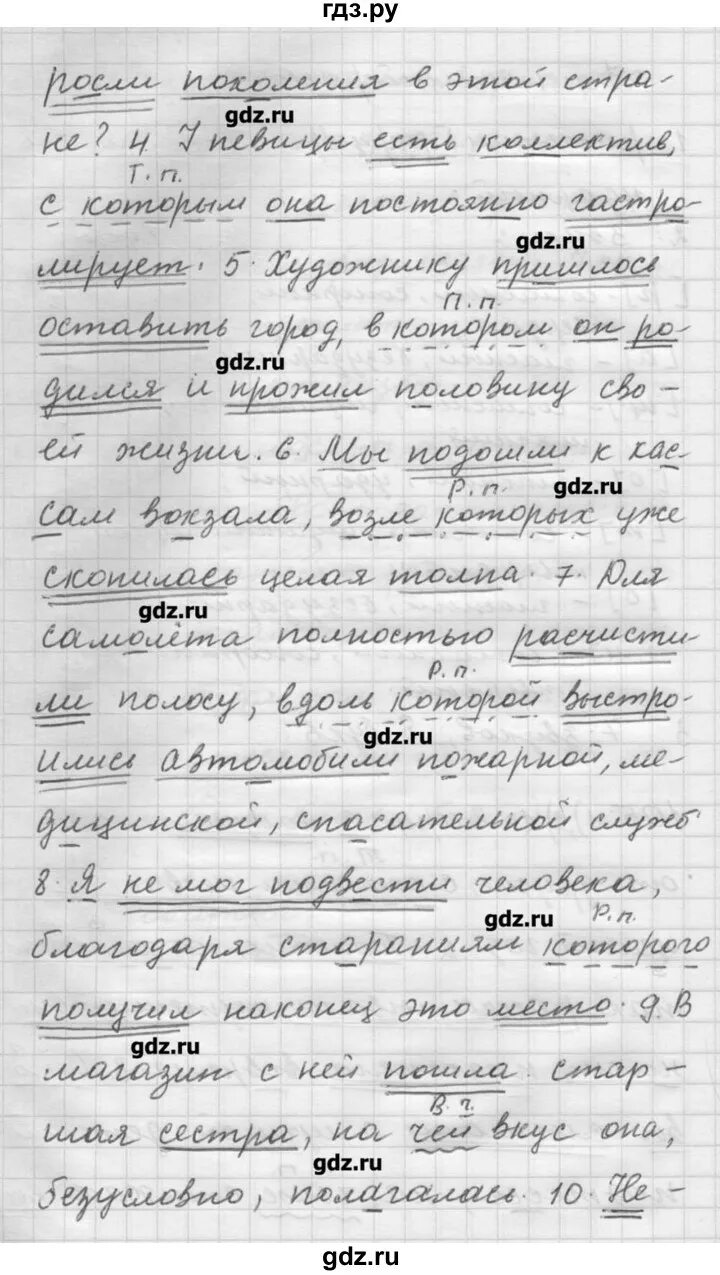 гдз.ру
росли поколения в этой стра-
gdz.ru
не? 4. У певицы есть коллектив,
Т. п.
с которым она постоянно гастро-
gdz.ru
лирует. 5. Художнику пришлось
П. п.
оставить город, в котором он ро-
gdz.ru
дился и прожил половину сво-
ей жизни. 6. Мы подошли к кас-
Р. п.
gdz.ru
сам вокзала, возле которых уже
скопилась целая толпа. 7. Для
gdz.ru
самолёта полностью расчисти-
Р. п.
ли полосу, вдоль которой выстро-
gdz.ru
ились автомобили пожарной, ме-
дицинской, спасательной служб
8. Я не мог подвести человека,
gdz.ru
Р. п.
благодаря стараниям которого
получил наконец это место. 9. В
gdz.ru
магазин с ней пошла стар-
В. г.
шая сестра, на чей вкус она,
gdz.ru
безусловно, полагалась. 10. Не-
gdz.ru